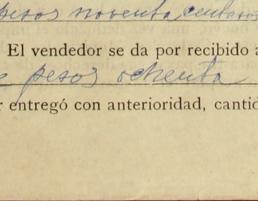 pesos noventa centavos
El vendedor se da por recibido a
e pesos ochenta
r entregó con anterioridad, cantid